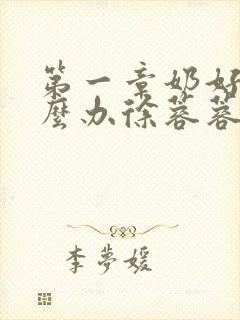 第一章奶好
麼办徐蓉蓉
李夢媛